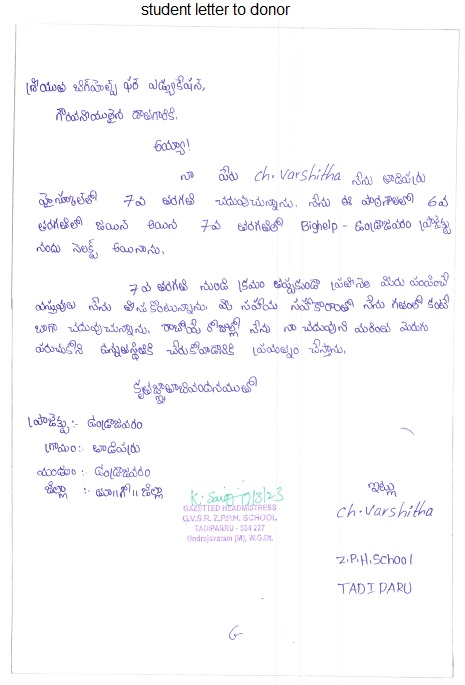 student letter to donor
శ్రీయుత బిగ్‌హెల్ప్ ఫర్ ఎడ్యుకేషన్,
గౌరవనీయులైన దాతగారికి,
అయ్యా!
నా పేరు Ch. Varshitha నేను తాడిపర్రు
హైస్కూల్‌లో 7వ తరగతి చదువుచున్నాను. నేను ఈ పాఠశాలలో 6వ
తరగతిలో జయిన్ అయిన 7వ తరగతిలో Bighelp - ఉండ్రాజవరం ప్రాజెక్టు
నందు సెలక్ట్ అయినాను.
7వ తరగతి నుండి క్రమం తప్పకుండా ప్రతినెల మీరు పంపించే
వస్తువులు నేను తీసుకొంటున్నాను. మీ సహాయ సహకారాలతో నేను గతంలో కంటే
బాగా చదువుచున్నాను. రాబోయే రోజుల్లో నేను నా చదువుని మరింత మెరుగు
పరుచుకొని ఉన్నతస్థితికి చేరుకోవడానికి ప్రయత్నం చేస్తాను.
కృతజ్ఞతాభివందనములతో
ప్రాజెక్టు :- ఉండ్రాజవరం
గ్రామం :- తాడిపర్రు
మండలం :- ఉండ్రాజవరం
జిల్లా :- తూ॥గో॥ జిల్లా
17/3/23
GAZETTED HEADMISTRESS
G.V.S.R. Z.P.P.H. SCHOOL
TADIPARRU - 534 227
Undrajavaram (M), W.G.Dt.
ఇట్లు
Ch. Varshitha
Z.P.H. School
TADIPARU